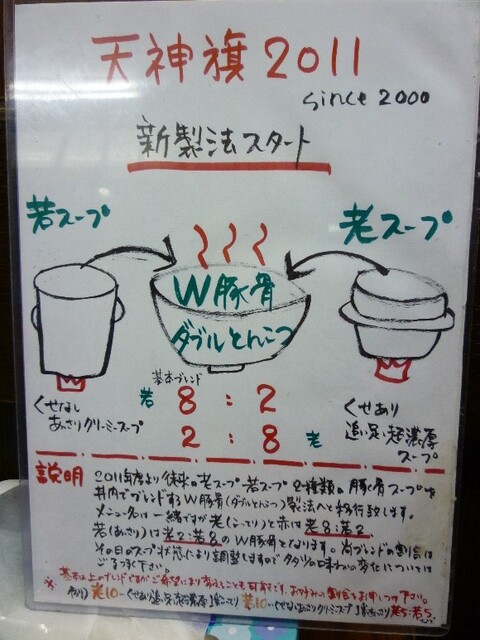 天神旗2011
since 2000
新製法スタート
若スープ
老スープ
W豚骨
ダブルとんこつ
基本ブレンド
若 8:2
2:8 老
くせなし
あっさりクリーミースープ
くせあり
追い足し超濃厚
スープ
説明
2011年度より従来の老スープ・若スープ2種類の豚骨スープを
丼内でブレンドするW豚骨(ダブルとんこつ)製法へと移行致します。
メニュー名は一緒ですが老(こってり)と赤は老8:若2、
若(あっさり)は老2:若8のW豚骨となります。尚ブレンドの割合は
その日のスープ状態により調整しますので
ご了承下さい。
※基本は上のブレンドですがご希望により変えることも可能です。お好みの割合をお申しつけ下さい。
老10
若10
老5:若5